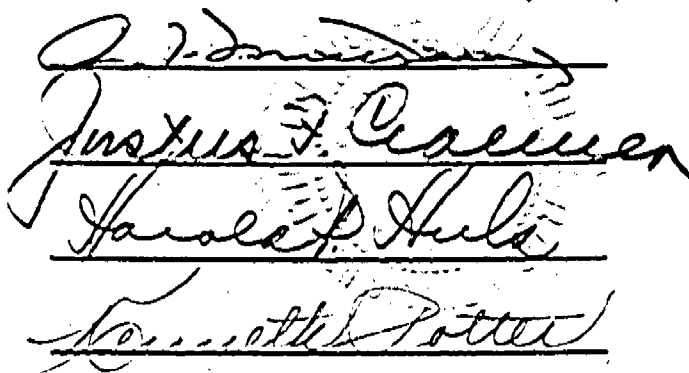 Justus F. Craemer
Harold P. Huls
Kenneth Potter